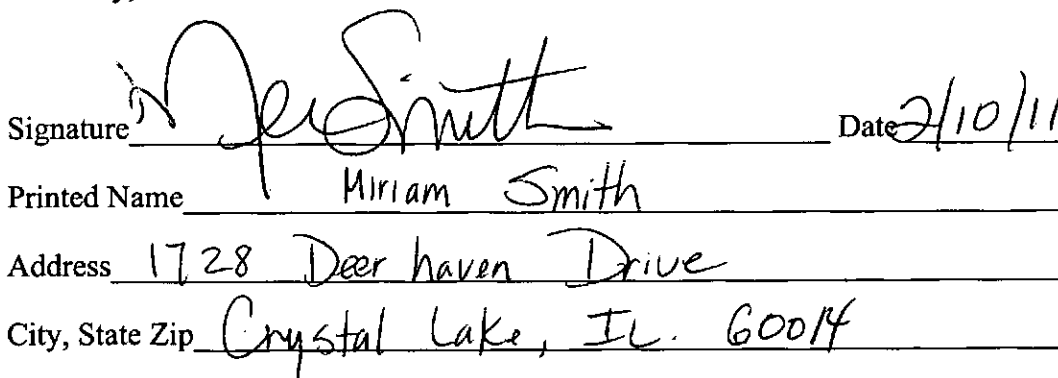 Signature Smith Date 2/10/11
Printed Name Miriam Smith
Address 1728 Deer haven Drive
City, State Zip Crystal Lake, IL. 60014